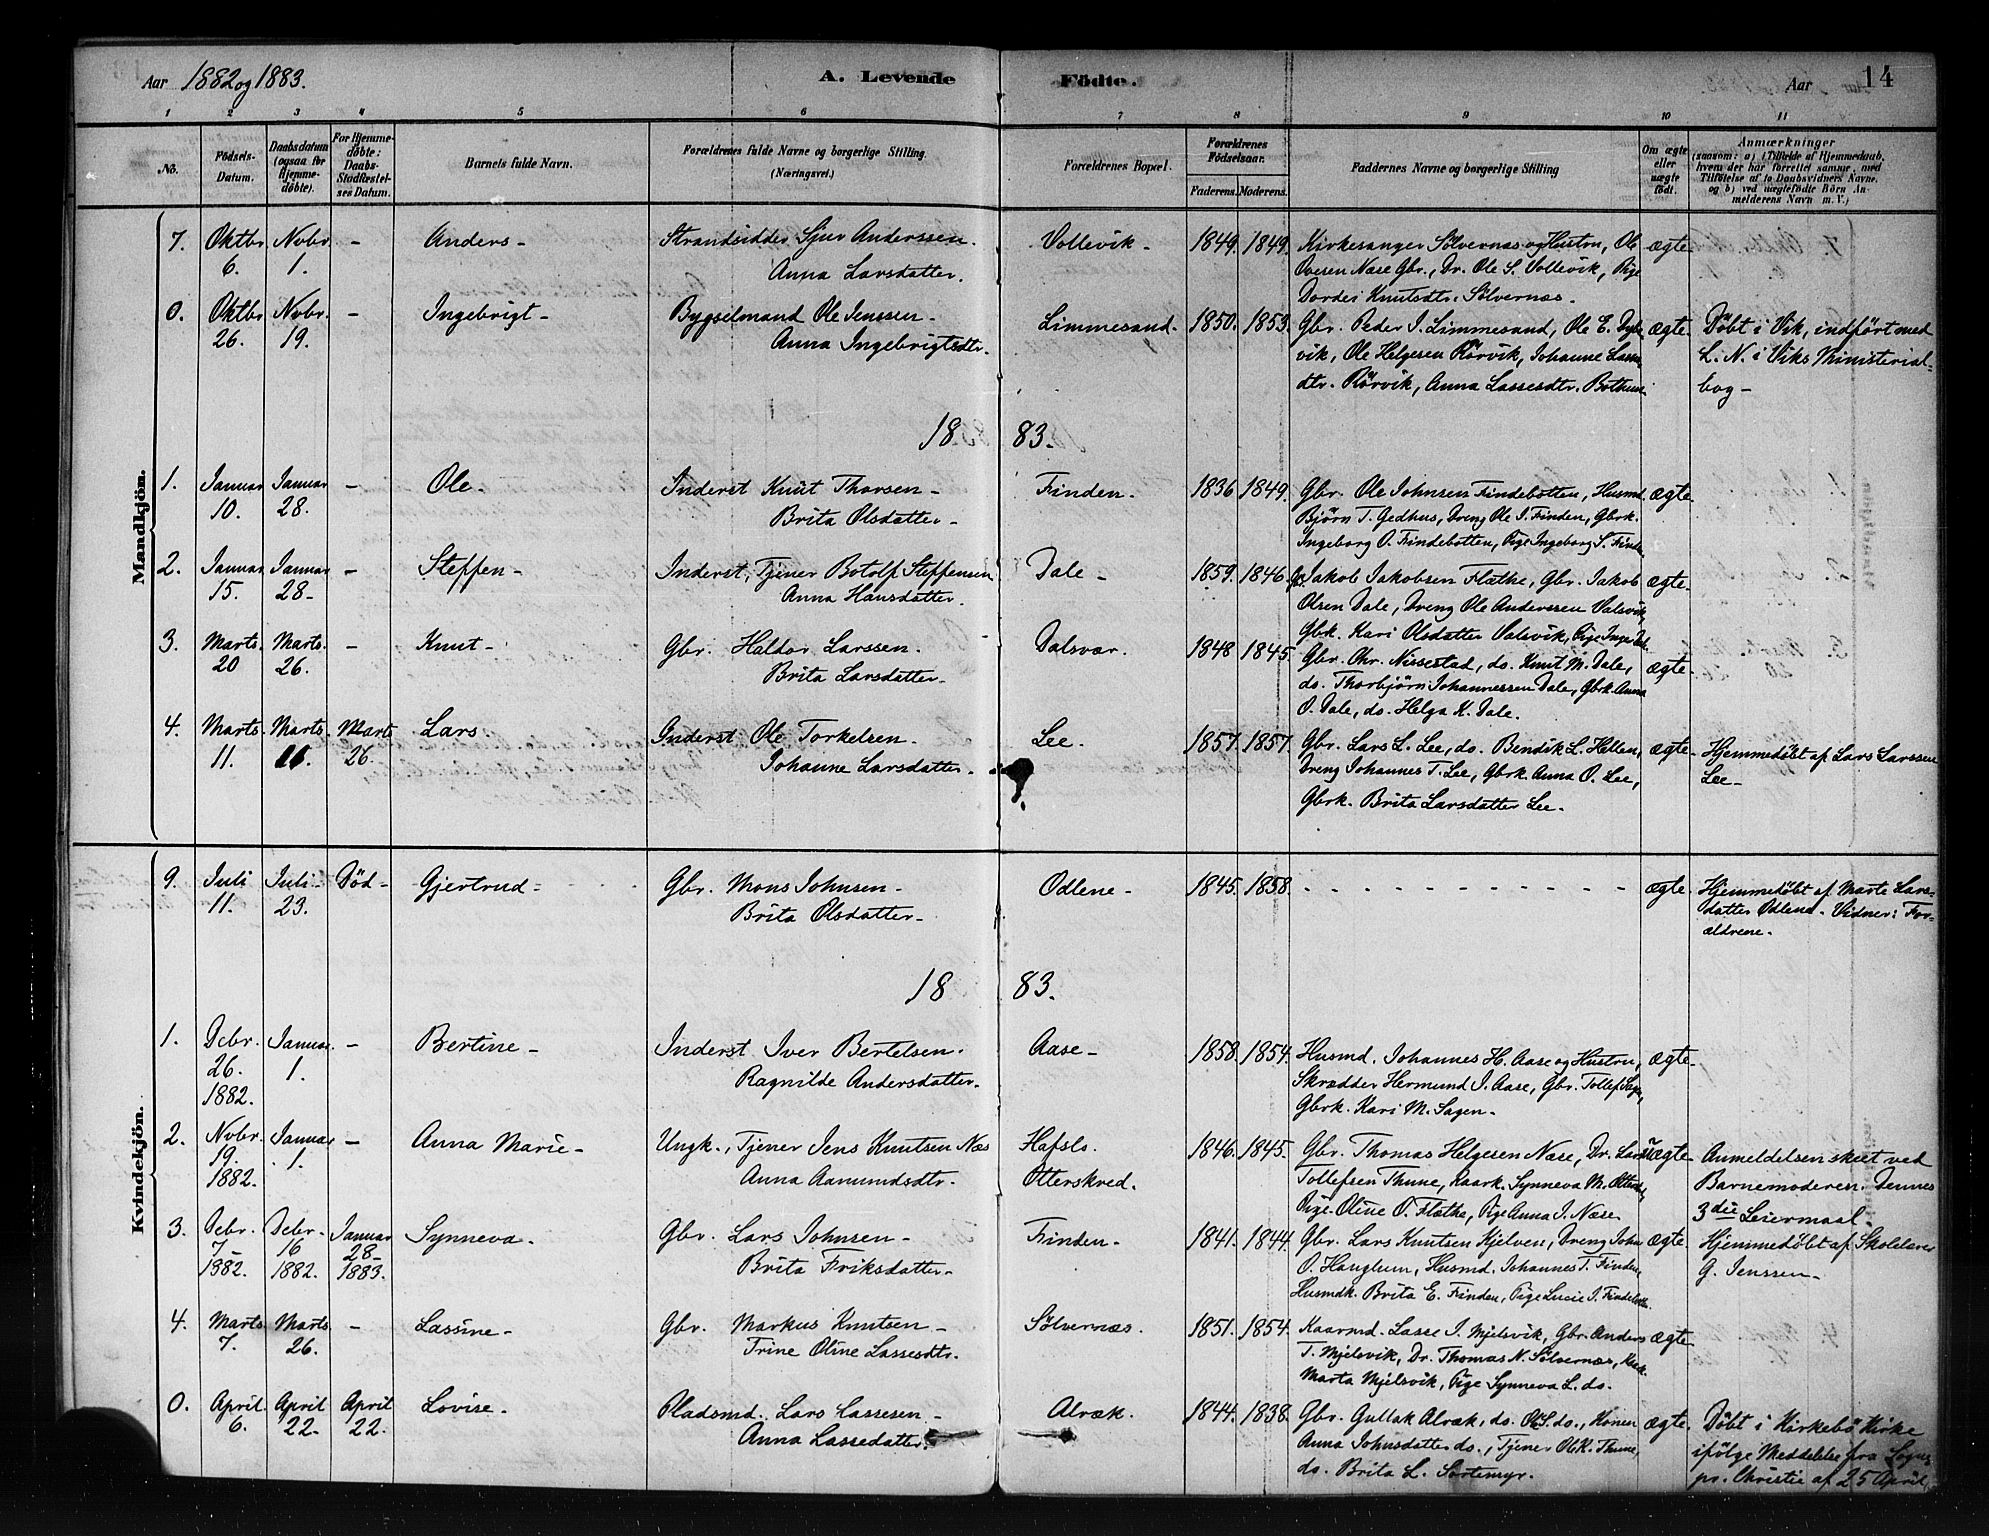 Aar 1882 og 1883.
A. Levende Födte.
Aar 14
1 2 3 4 5 6 7 8 9 10 11
No.
Födsels-Datum.
Daabsdatum (ogsaa for Hjemme-döbte).
For Hjemme-döbte: Daabs-Stadfæstel-ses Datum.
Barnets fulde Navn.
Forældrenes fulde Navne og borgerlige Stilling. (Næringsvei.)
Forældrenes Bopæl.
Forældrenes Födselsaar.
Faderens. Moderens.
Faddernes Navne og borgerlige Stilling
Om ægte eller uægte födt.
Anmærkninger
(saasom: a) i Tilfælde af Hjemmedaab, hvem der har forrettet samme, med Tilföielse af to Daabsvidners Navne, og b) ved uægtefödte Börn An-melderens Navn m. V.)
Mandkjön.
7. Oktbr. 6. Novbr. 1. - Anders - Strandsidder Sjur Anderssen. Vollevik - 1849. 1849. Kirkesanger Sølvernæs og Hustru, Ole ægte
Anna Larsdatter. Iversen Næse Gbr., Dr. Ole S. Vollevik, Pige
Dordei Knutsdtr. Sølvernæs.
0. Oktbr 26. Novbr. 19. - Ingebrigt - Bygselmand Ole Jenssen - Limmesand. 1850. 1853. Gbr. Peder I. Limmesand, Ole E. ægte Døbt i Vik, indført med
Anna Ingebrigtsdtr. vik, Ole Helgesen Rörvik, Johanne L. N. i Viks Ministerial-
dtr. Rörvik, Anna Lassesdtr. bog -
1883.
1. Januar 10. Januar 28. - Ole. Inderst Knut Thorsen - Finden. 1836 1849. Gbr. Ole Johnsen Findebotten, Husmd. ægte
Brita Olsdatter - Björn T. Gedhus, Dreng Ole I. Finden, Gbrk.
Ingeborg O. Findebotten, Pige Ingeborg S.
2. Januar 15. Januar 28 - - Steffen - Inderst, Tjener Botolf Steffensen Dale - 1859. 1846. Jakob Jakobsen Flathe, Gbr. Jakob ægte
Anna Hansdatter. Olsen Dale, Dreng Ole Anderssen Valsvik,
Gbrk. Kari Olsdatter Valsvik,
3. Marts 20 Marts 26. - Knut - Gbr. Haldor Larssen. Dalsvær. 1848 1845. Gbr. Chr. Nissestad, do. Knut M. Dale, ægte
Brita Larsdatter - do. Thorbjørn Johannessen Dale, Gbrk. Anna
O. Dale, do. Helga K. Dale.
4. Marts 11. Marts Marts 26. Lars Inderst Ole Torkelsen - Lee. 1857. 1857. Gbr. Lars L. Lee, do. Bendik L. Hellen, ægte Hjemmedøbt af Lars Larssen
Johanne Larsdatter - Dreng Johannes T. Lee, Gbrk. Anna O. Lee, Lee -
Gbrk. Brita Larsdatter Lee.
Kvindekjön.
9. Juli 11. Juli 23. Død - Gjertrud - Gbr. Mons Johnsen - Odlene - 1845. 1858. - - - - - ægte Hjemmedøbt af Marte Lars-
Brita Olsdatter - datter Odlene - Vidner: For-
ældrene.
1883.
1. Debr. 26. 1882. Januar 1. - Bertine - Inderst Iver Bertelsen. Aase - 1858. 1854. Husmd. Johannes H. Aase og Hustru, ægte
Ragnilde Andersdatter. Skrædder Hermund I. Aase, Gbr. Tollef
Gbrk. Kari M. Sagen.
2. Novbr. 19. 1882. Januar 1. - Anna Marie - Ungk., Tjener Jens Knutsen Næs Hafslo. 1846. 1845. Gbr. Thomas Helgesen Næse, Dr. Lars uægte Anmeldelsen skeet ved
Anna Aamundsdtr. Otterskred. Tollefsen Thune, Kaark. Synneva M. Barnemoderen. Dennes
Pige Oline O. Flathe, Pige Anna I. Næse 3die Leiermaal -
3. Debr. 7 1882. Debr. 16 1882. Januar 28 - 1883. Synneva. Gbr. Lars Johnsen - Finden - 1841. 1844. Gbr. Lars Knutsen Kjelven, Dreng John ægte Hjemmedøbt af Skolelærer
Brita Eriksdatter - O. Hauglum, Husmd. Johannes T. Finden, G. Jenssen -
Husmdk. Brita E. Finden, Pige Lucie I.
4. Marts 7. Marts 26. - Lassine - Gbr. Markus Knutsen - Sølvernæs. 1851. 1854. Kaarmd. Lasse I. Mjelsvik, Gbr. Anders ægte
Trine Oline Lassesdtr. T. Mjelsvik, Dr. Thomas N. Sølvernæs,
Marta Mjelsvik, Pige Synneva L. do.
0. April 6. April 22 - April 22. Lovise - Pladsmd. Lars Lassesen - Alræk. 1844. 1838. Gbr. Gullak Alræk, do. Ole S. do., Konen ægte Døbt i Kirkebö Kirke
Anna Lassedatter. Anna Johnsdatter do., Tjener Ole K. Thune, ifølge Meddelelse fra Sogne-
do. Brita L. Sortemyr. pr. Christie af 25 April